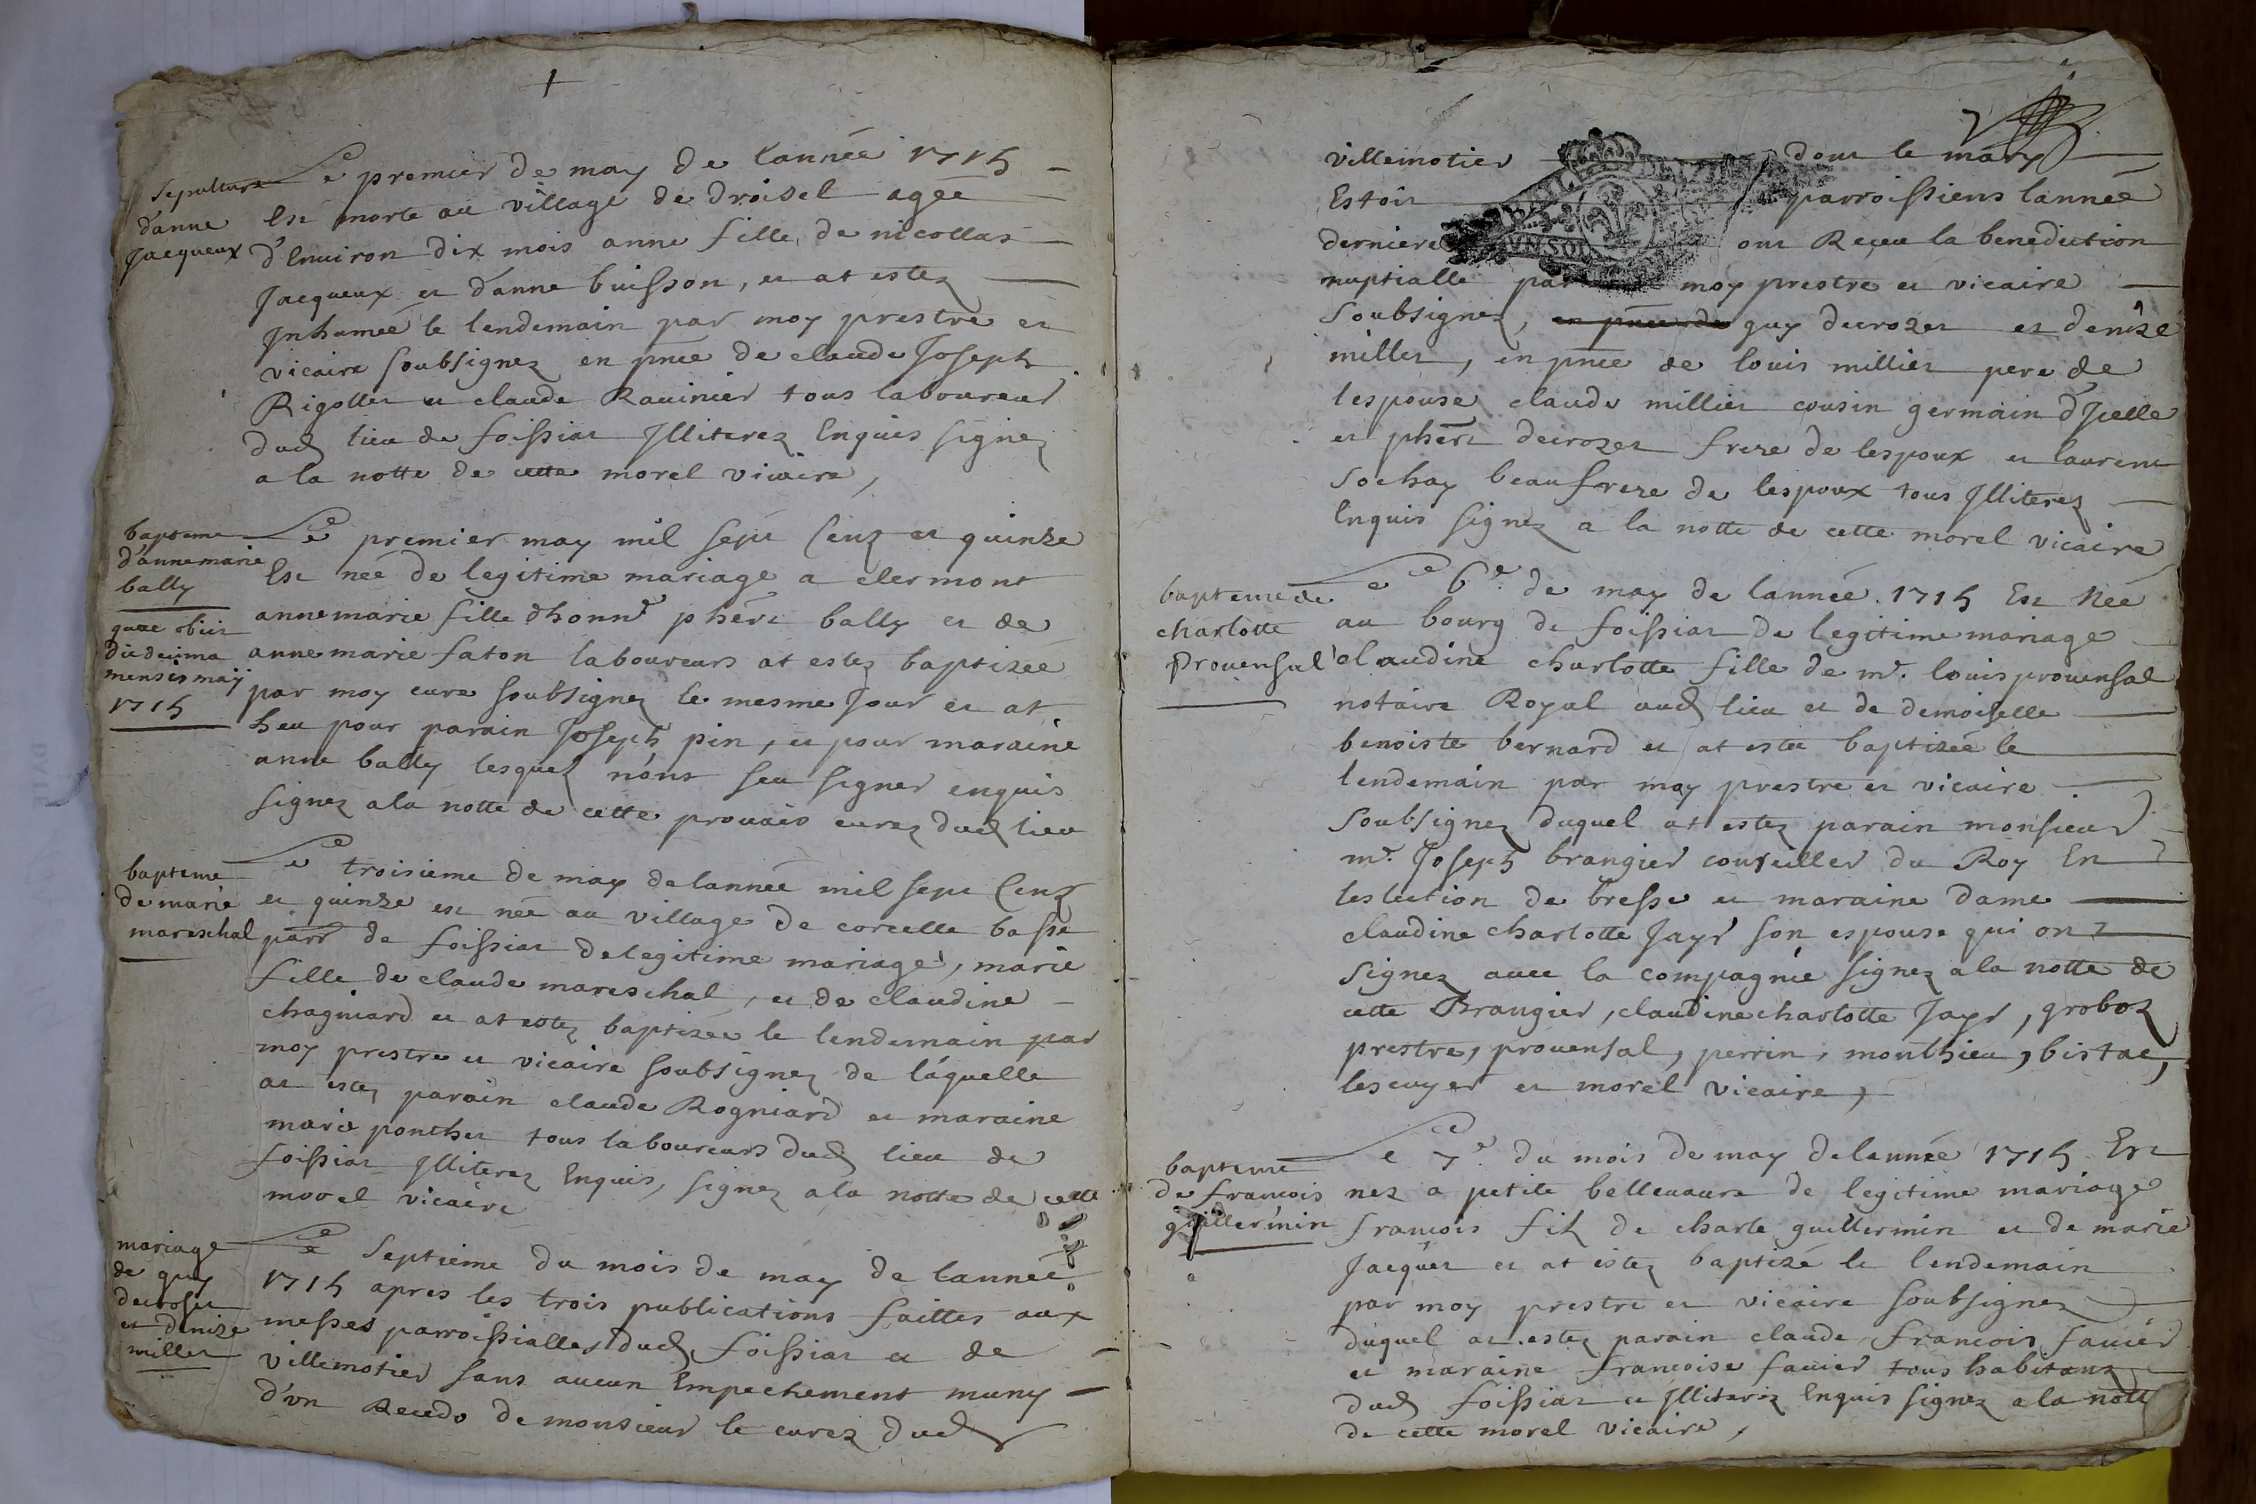 sepulture
d'anne
Jacqueux
Le premier de may de l'année 1715
Est morte au village de Droisel agée
d'Environ dix mois anne fille de nicollas
Jacqueux et d'anne buisson, et at estez
Jnhumeé le lendemain par moy prestre et
vicaire soubsignez en pnce de claude Joseph
Rigollet et claude Rauinier tous laboureur
dud lieu de foissiat Jlliterez Enquis signez
a la notte de cette morel vicaire,
bapteme
d'annemarie
bally
quae obiit
die decima
mensis maij
1715
Le premier may mil sept Cenz et quinze
Est neé de legitime mariage a clermont
annemarie fille d'honne phért bally et de
anne marie faton laboureurs at estez baptizeé
par moy cure soubsignez le mesme Jour et at
heu pour parain Joseph pin, et pour maraine
anne bally lesquelz n'ont sceu signer enquis
signez a la notte de cette prouais curez dud lieu
bapteme
de marie
mareschal
Le troisieme de may de lanneé mil sept Cenz
et quinze est neé au village de corcelle basse
parr de foissiat de legitime mariage, marie
fille de claude mareschal, et de claudine
chagniard et at estez baptizeé le lendemain par
moy prestre et vicaire soubsignez de laquelle
at estez parain claude Rogniard et maraine
marie ponthet tous laboureurs dud lieu de
foissiat Jlliterez Enquis, signez a la notte de cette
morel vicaire
mariage
de guy
decrozet
et denize
millet
Le septieme du mois de may de lanneé
1715 apres les trois publications faittes aux
messes parroissialles dud foissiat et de
villemotier sans aucun Empechement muny
d'vn Recedo de monsieur le curez dud
villemotier dont le mary
Estoit parroissiens lanneé
derniere ont Receu la benediction
nuptialle par moy prestre et vicaire
soubsignez, en pnce de guy decrozet et denize
millet, en pnce de louis milliet pere de
lespouse claude milliet cousin germain d'Jcelle
et phért decrozet frere de lespoux et laurent
sochay beaufrere de lespoux tous Jlliterez
Enquis signez a la notte de cette morel vicaire
bapteme de
charlotte
Prouensal
Le 6e. de may de lanneé 1715 Est Neé
au bourg de foissiat de legitime mariage
claudine charlotte fille de mr. louis prouensal
notaire Royal aud lieu et de demoiselle
benoiste bernard et at estee baptizeé le
lendemain par moy prestre et vicaire
soubsignez duquel at estez parain monsieur
mr. Joseph brangier conseiller du Roy En
leslection de bresse et maraine Dame
claudine charlotte Jayr son espouse qui ont
signez auec la compagnie signez a la notte de
cette Brangier, claudine charlotte Jayr, groboz
prestre, prouensal, perrin, monthieu, bistac,
lescuyer et morel vicaire,
bapteme
de francois
guillermin
Le 7e. du mois de may de lanneé 1715 Est
nez a petite belleuaure de legitime mariage
francois filz de charle guillermin et de marie
Jacquet et at estez baptizé le lendemain
par moy prestre et vicaire soubsignez
duquel at estez parain claude francois fauier
et maraine francoise fauier tous habitanz
dud foissiat et Jlliterez Enquis signez a la notte
de cette morel vicaire,